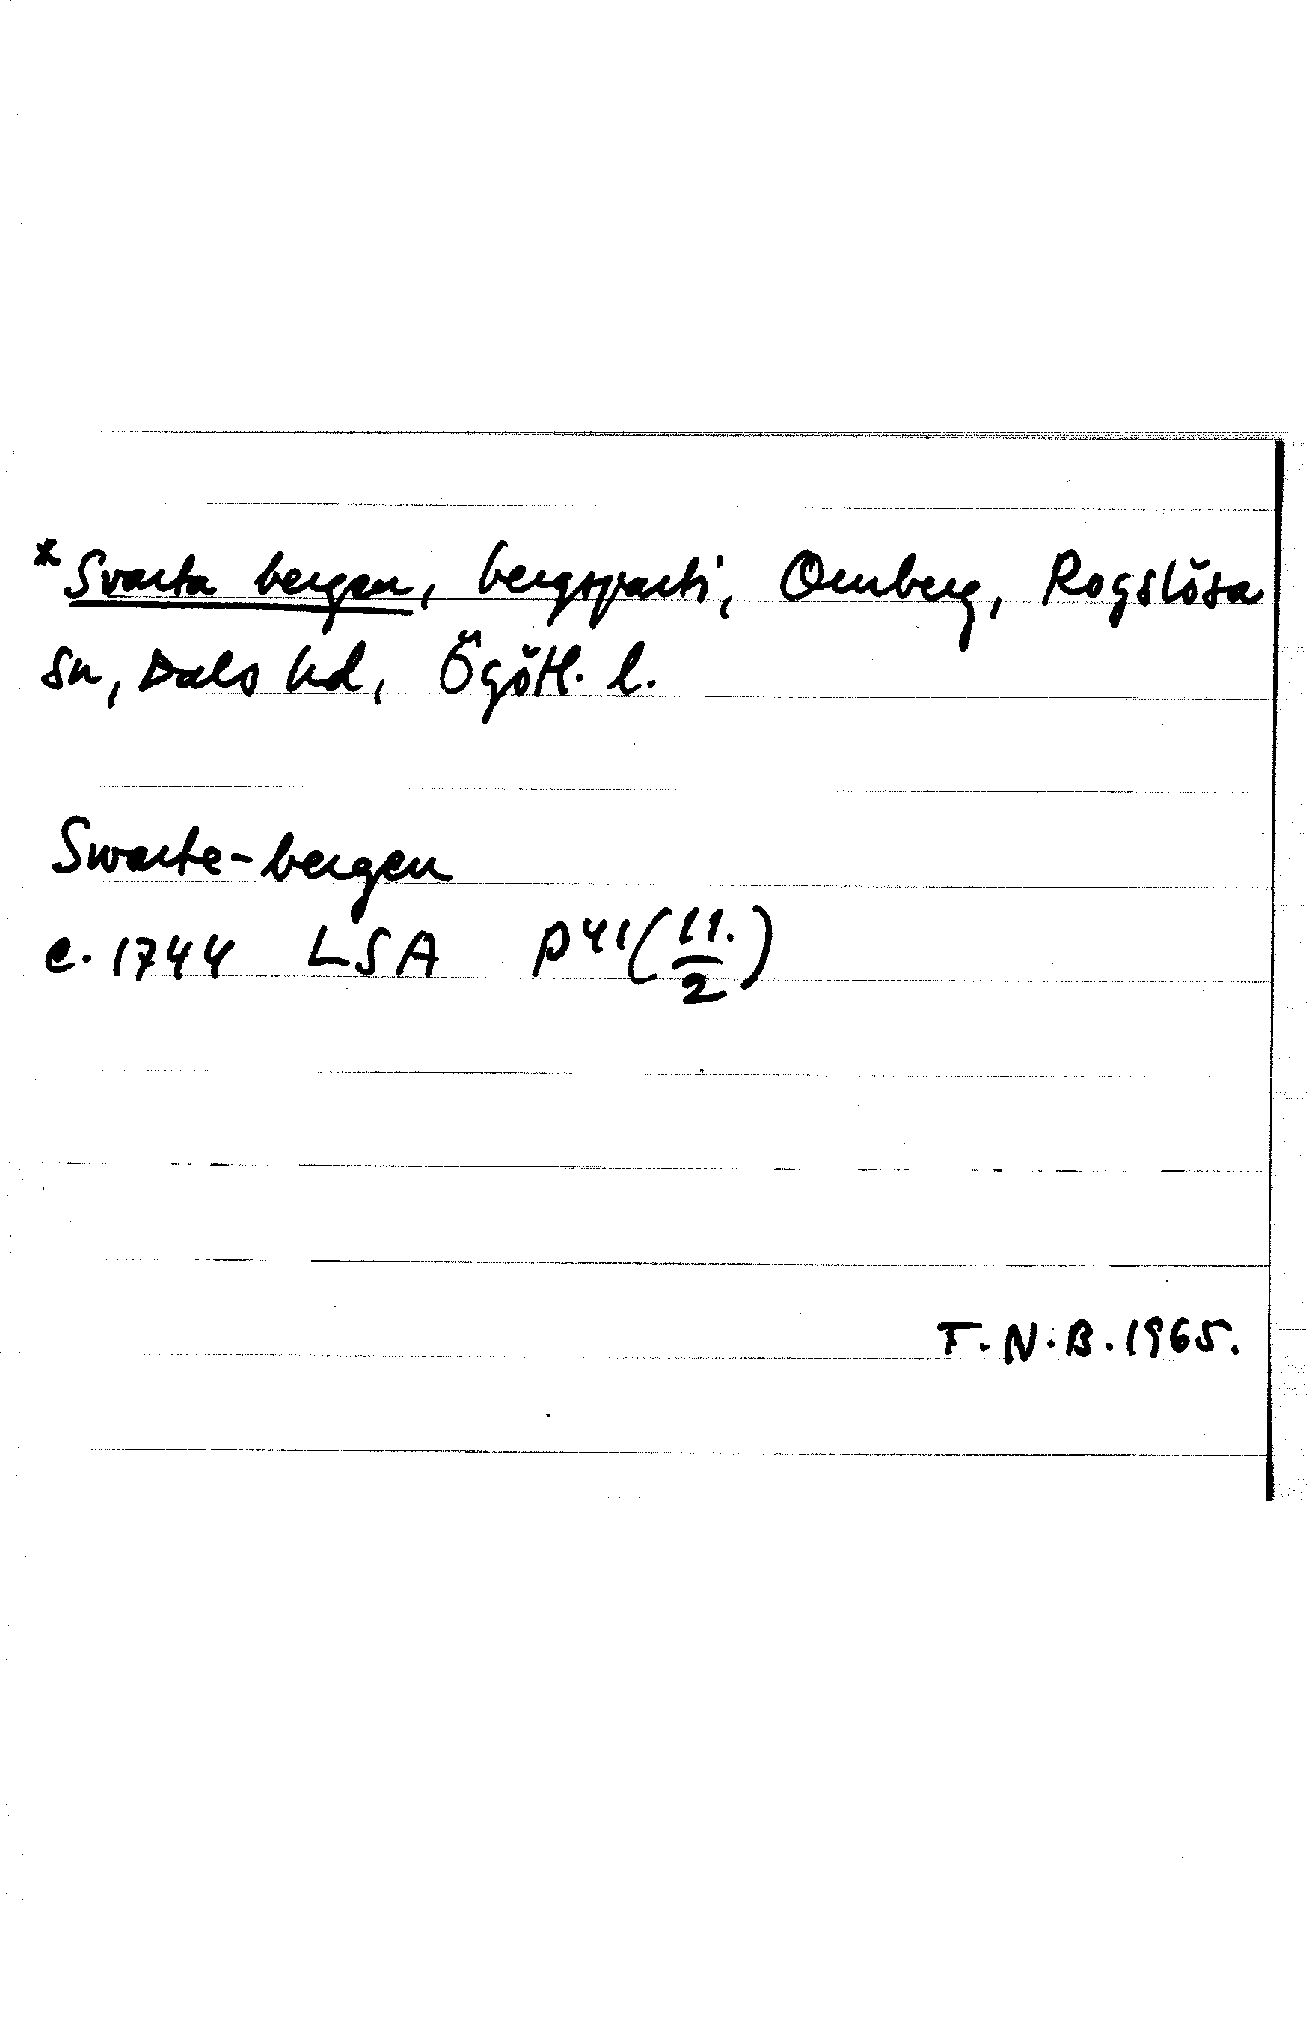 *Svarta bergen, bergsparti, Omberg, Rogslösa
sn, Dals hd, Ögötl. l.
Swarte-bergen
c. 1744 LSA P41(11./2)
T.N.B. 1965.